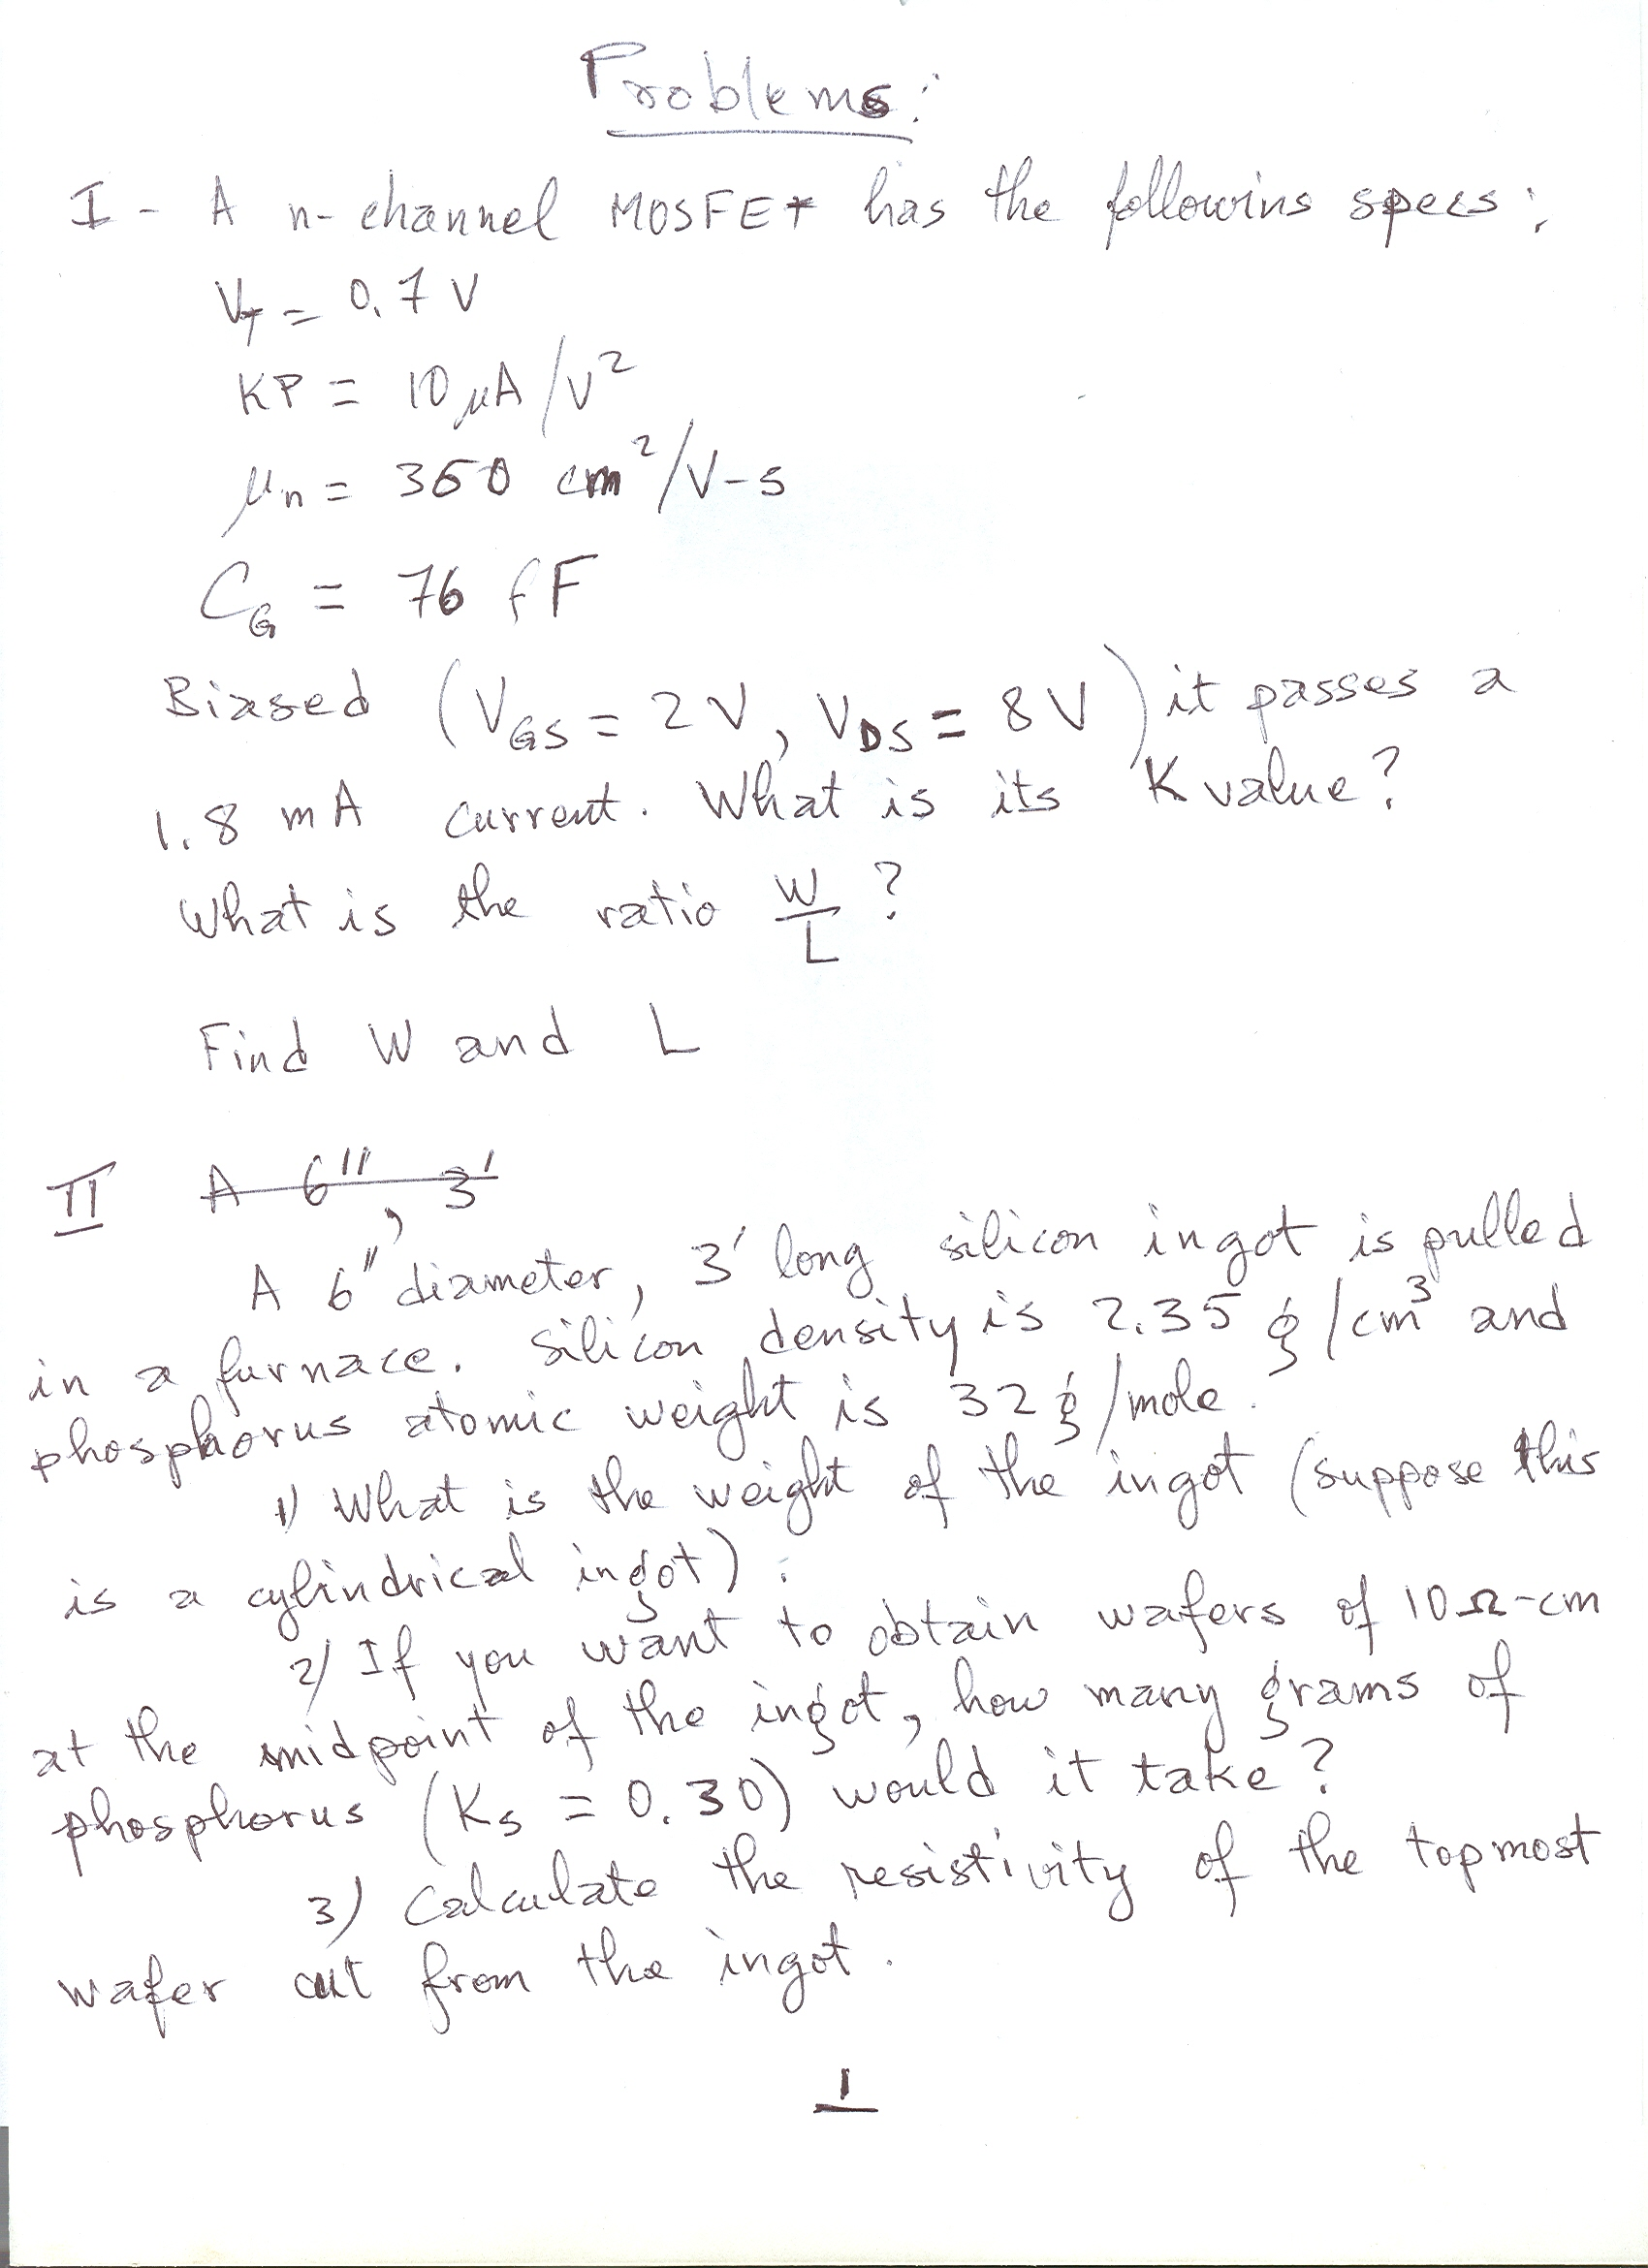 Problems:
I - A n-channel MOSFET has the followins specs:
V_T = 0.7 V
KP = 10 μA/V²
μ_n = 360 cm²/V-s
C_G = 76 fF
Biased (V_GS = 2V, V_DS = 8V) it passes a
1.8 mA current. What is its K value?
What is the ratio W/L ?
Find W and L
II A 6", 3'
A 6" diameter, 3' long silicon ingot is pulled
in a furnace. Silicon density is 2.35 g/cm³ and
phosphorus atomic weight is 32 g/mole.
1) What is the weight of the ingot (suppose this
is a cylindrical ingot):
2) If you want to obtain wafers of 10 Ω-cm
at the midpoint of the ingot, how many grams of
phosphorus (K_s = 0.30) would it take?
3) Calculate the resistivity of the topmost
wafer cut from the ingot.
1